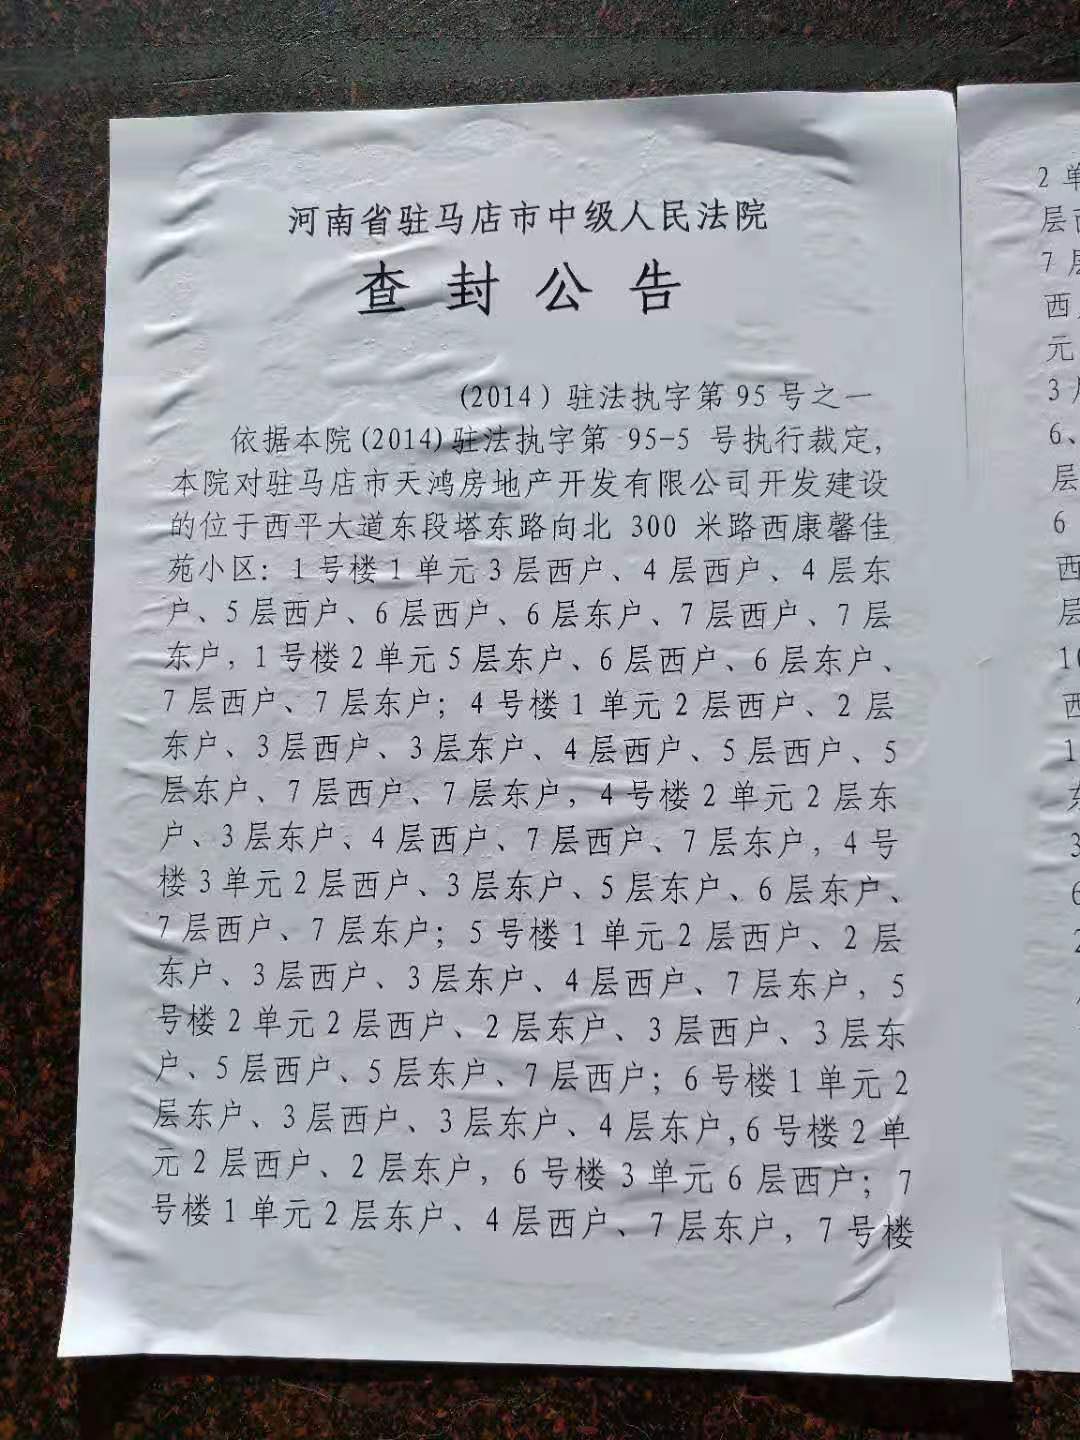 河南省驻马店市中级人民法院
查封公告
(2014)驻法执字第95号之一
依据本院(2014)驻法执字第 95-5 号执行裁定,
本院对驻马店市天鸿房地产开发有限公司开发建设
的位于西平大道东段塔东路向北 300 米路西康馨佳
苑小区：1号楼1单元3层西户、4层西户、4层东
户、5层西户、6层西户、6层东户、7层西户、7层
东户，1号楼2单元5层东户、6层西户、6层东户、
7层西户、7层东户；4号楼1单元2层西户、2层
东户、3层西户、3层东户、4层西户、5层西户、5
层东户、7层西户、7层东户，4号楼2单元2层东
户、3层东户、4层西户、7层西户、7层东户，4号
楼3单元2层西户、3层东户、5层东户、6层东户、
7层西户、7层东户；5号楼1单元2层西户、2层
东户、3层西户、3层东户、4层西户、7层东户，5
号楼2单元2层西户、2层东户、3层西户、3层东
户、5层西户、5层东户、7层西户；6号楼1单元2
层东户、3层西户、3层东户、4层东户,6号楼2单
元2层西户、2层东户，6号楼3单元6层西户；7
号楼1单元2层东户、4层西户、7层东户，7号楼
2单
层西
7层
西
元
3
6、
层
6
西
层
10
西
1
东
3
6
2